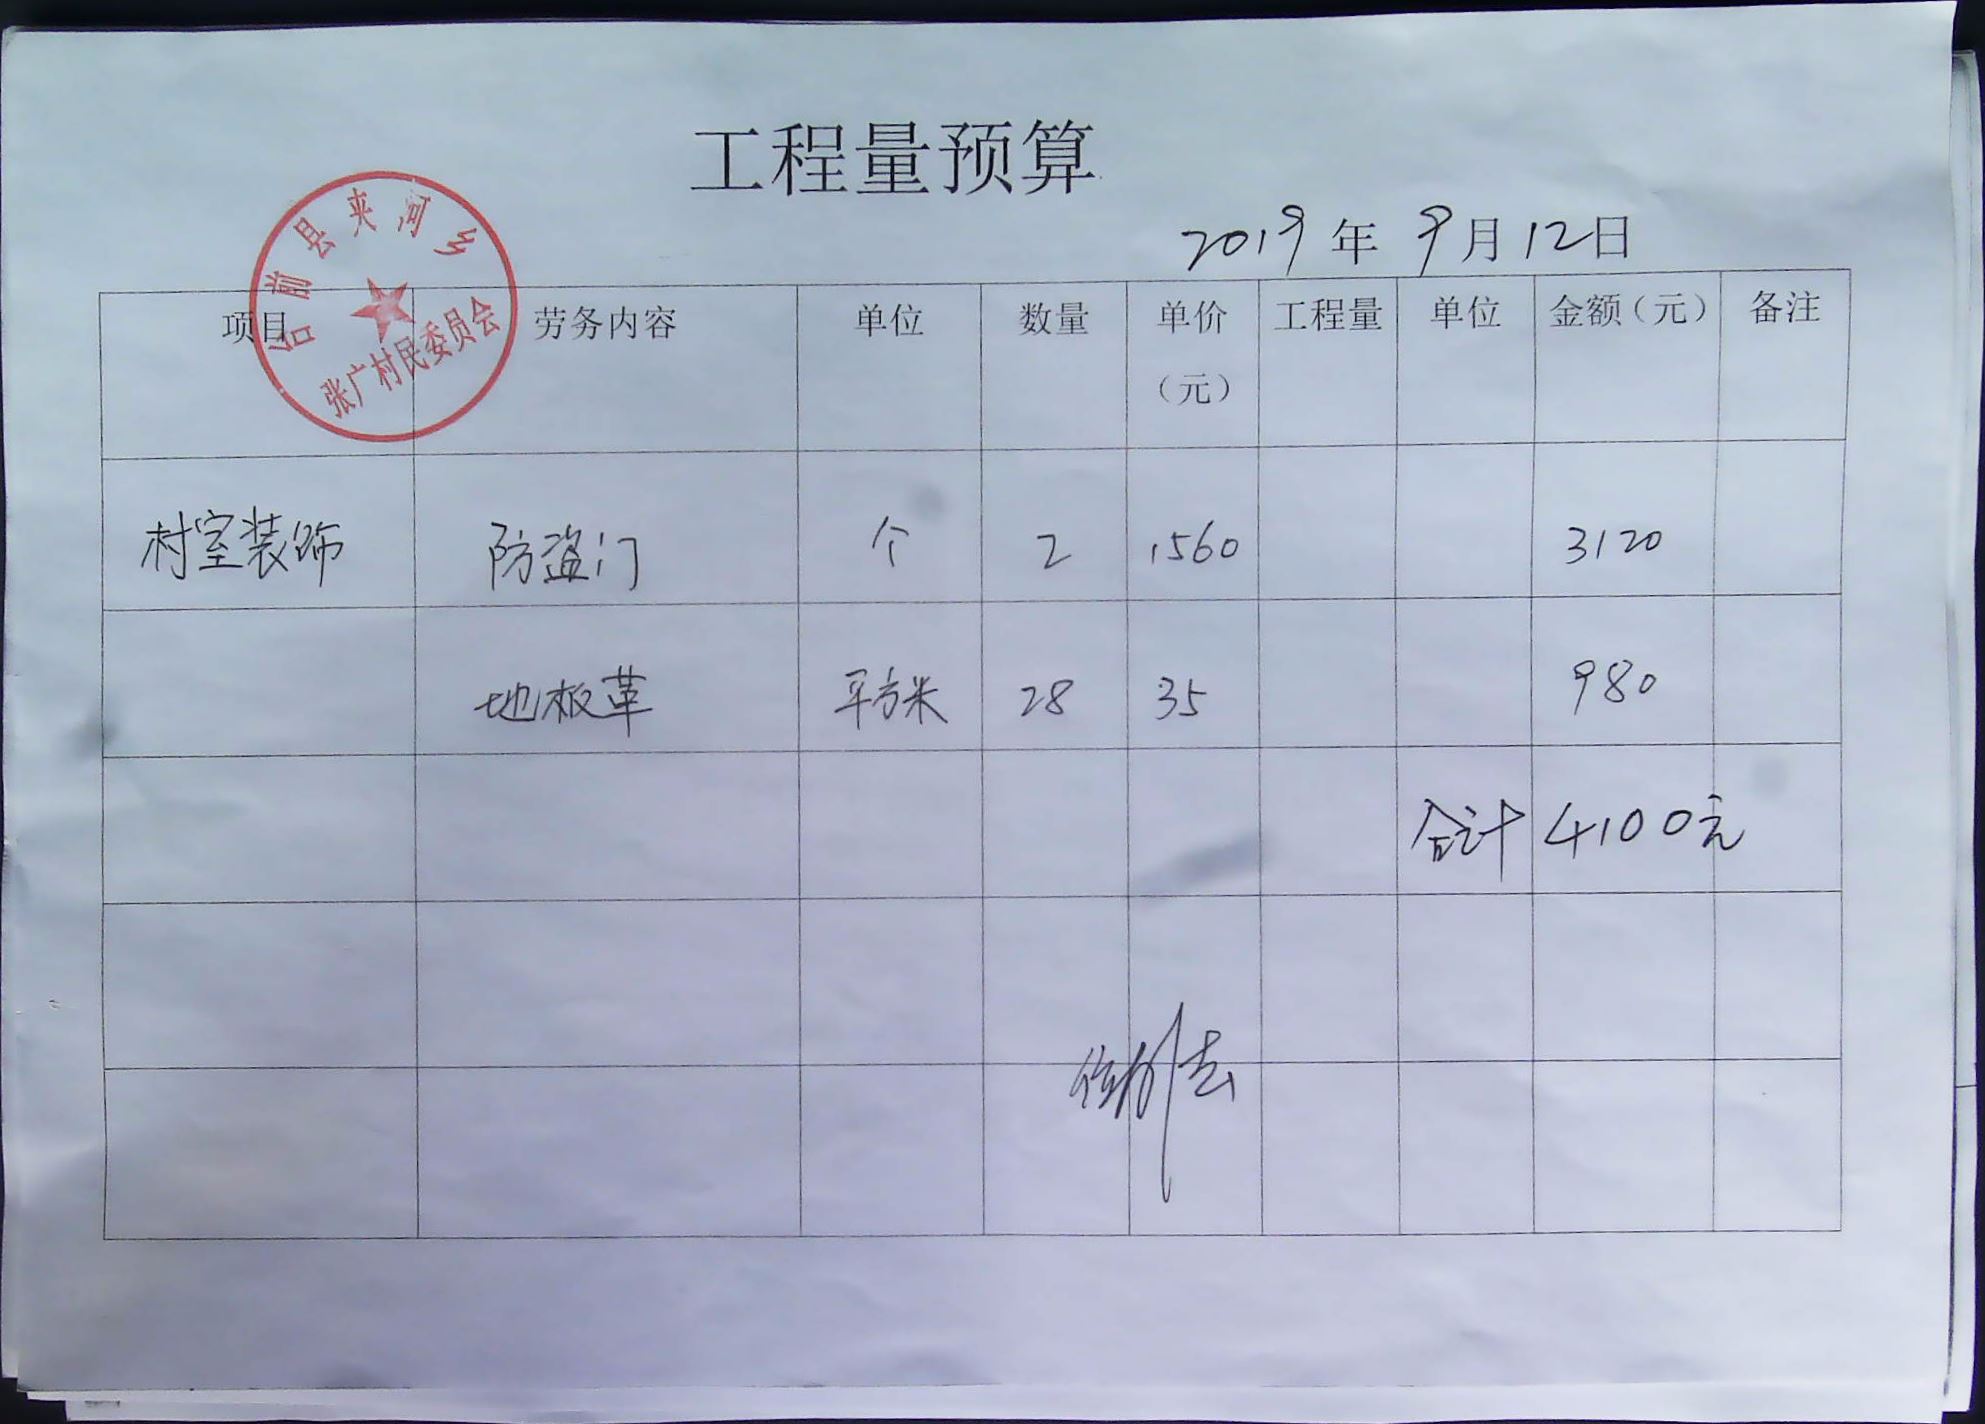 工程量预算
2019年9月12日
台前县夹河乡
张广村民委员会
项目 劳务内容 单位 数量 单价（元） 工程量 单位 金额（元） 备注
村室装饰 防盗门 个 2 1560 3120
地板革 平方米 28 35 980
合计 4100元